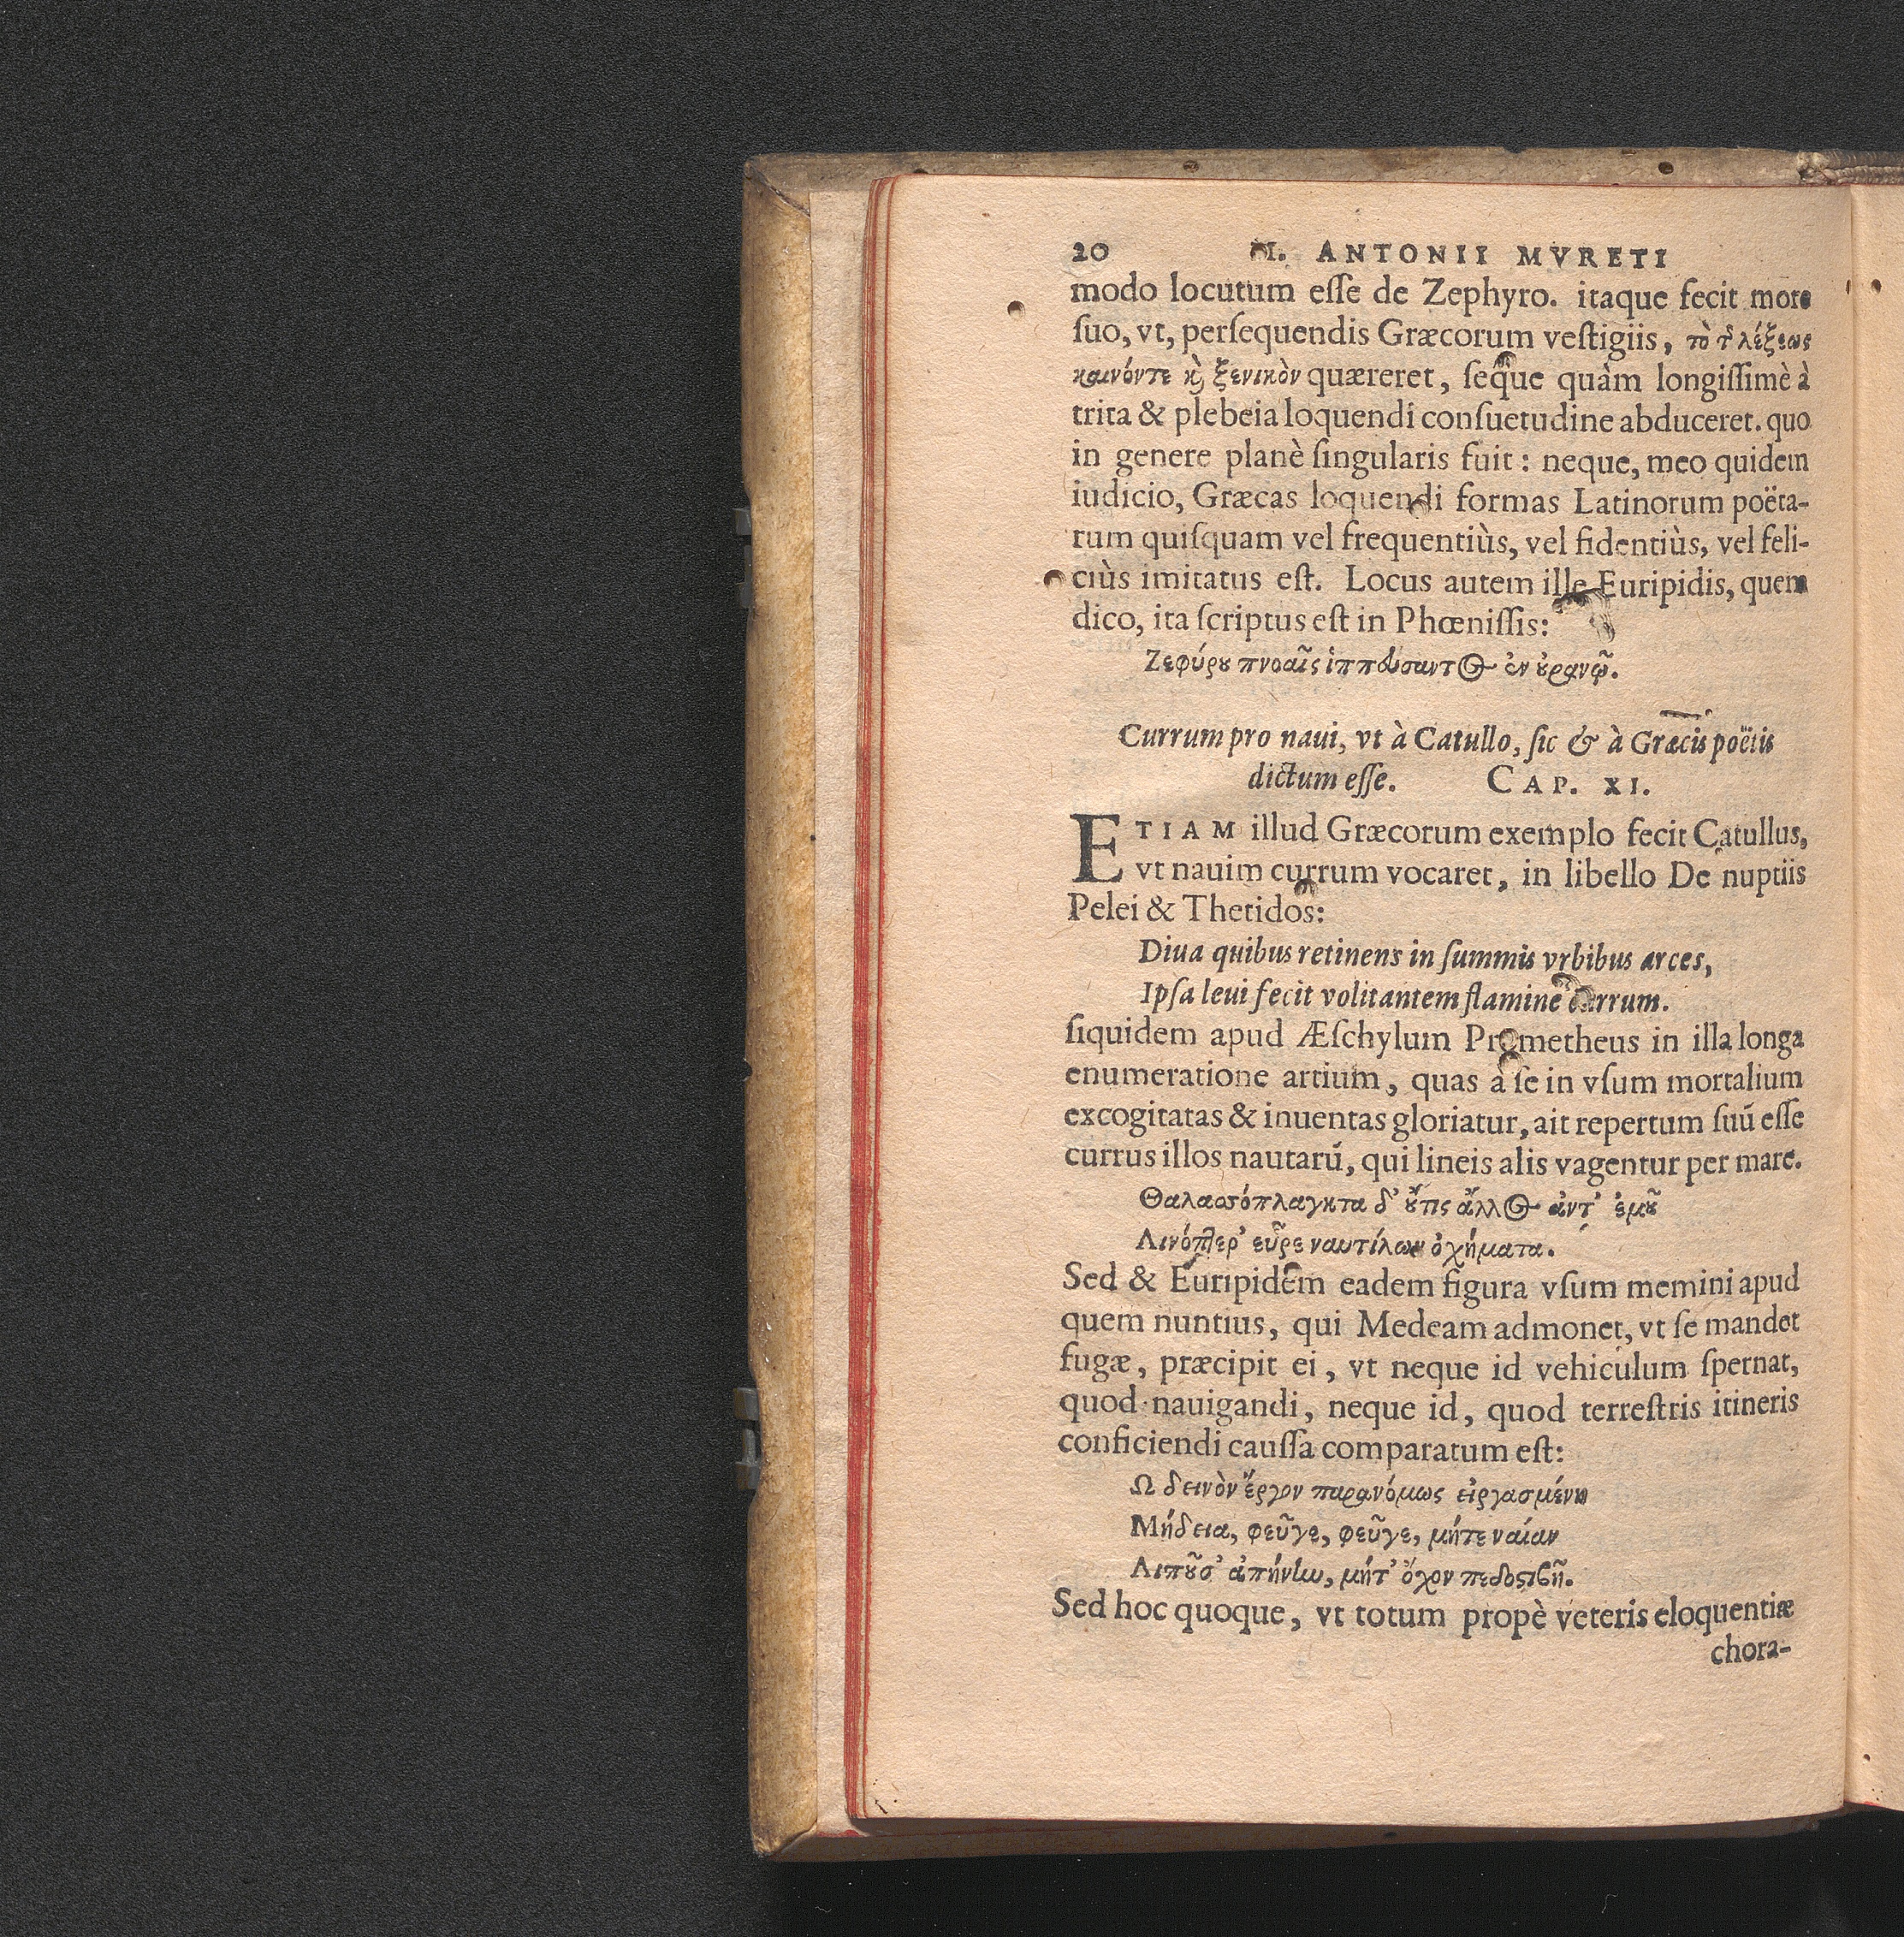 20 M. ANTONII MVRETI
modo locutum eſſe de Zephyro. itaque fecit more
ſuo, vt, perſequendis Græcorum veſtigiis, τὸ τ̃ λέξεως
καινόντε κỳ ξενικὸν quæreret, ſeque quàm longiſſimè à
trita & plebeia loquendi conſuetudine abduceret. quo
in genere planè ſingularis fuit: neque, meo quidem
iudicio, Græcas loquendi formas Latinorum poëta-
rum quiſquam vel frequentiùs, vel fidentiùs, vel feli-
ciùs imitatus eſt. Locus autem ille Euripidis, quem
dico, ita ſcriptus eſt in Phœniſſis:
Ζεφύρȣ πνοαῖς ἱππεύσαντος ἐν ȣ̓ρανῷ.
Currum pro naui, vt à Catullo, ſic & à Græcis poëtis
dictum eſſe. CAP. XI.
ETIAM illud Græcorum exemplo fecit Catullus,
vt nauim currum vocaret, in libello De nuptiis
Pelei & Thetidos:
Diua quibus retinens in ſummis vrbibus arces,
Ipſa leui fecit volitantem flamine currum.
ſiquidem apud Æſchylum Prometheus in illa longa
enumeratione artium, quas à ſe in vſum mortalium
excogitatas & inuentas gloriatur, ait repertum ſuū eſſe
currus illos nautarū, qui lineis alis vagentur per mare.
Θαλασσόπλαγκτα δ’ ȣ̓́τις ἄλλος ἀντ’ ἐμȣ͂
Λινόπτερ’ εὗρε ναυτίλων ὀχήματα.
Sed & Euripidem eadem figura vſum memini apud
quem nuntius, qui Medeam admonet, vt ſe mandet
fugæ, præcipit ei, vt neque id vehiculum ſpernat,
quod nauigandi, neque id, quod terreſtris itineris
conficiendi cauſſa comparatum eſt:
Ω δεινὸν ἔργον παρανόμως εἰργασμένη
Μήδεια, φεῦγε, φεῦγε, μήτε ναίαν
Λιπȣ͂σ’ ἀπήνην, μήτ’ ὄχον πεδοστιβῆ.
Sed hoc quoque, vt totum propè veteris eloquentiæ
chora-